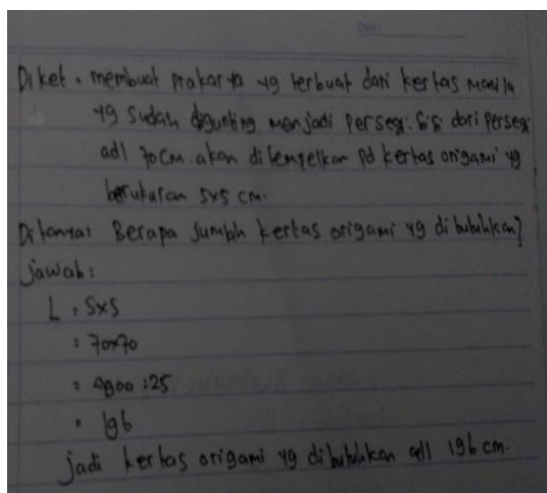 Diket : membuat prakarya yg terbuat dari kertas manila
yg sudah digunting menjadi persegi. S:S dari persegi
adl 70cm. akan ditempelkan pd kertas origami yg
berukuran 5x5 cm.
Ditanya: Berapa jumlah kertas origami yg dibutuhkan?
jawab:
L : SxS
: 70x70
: 4900 :25
: 196
jadi kertas origami yg dibutuhkan adl 196 cm.